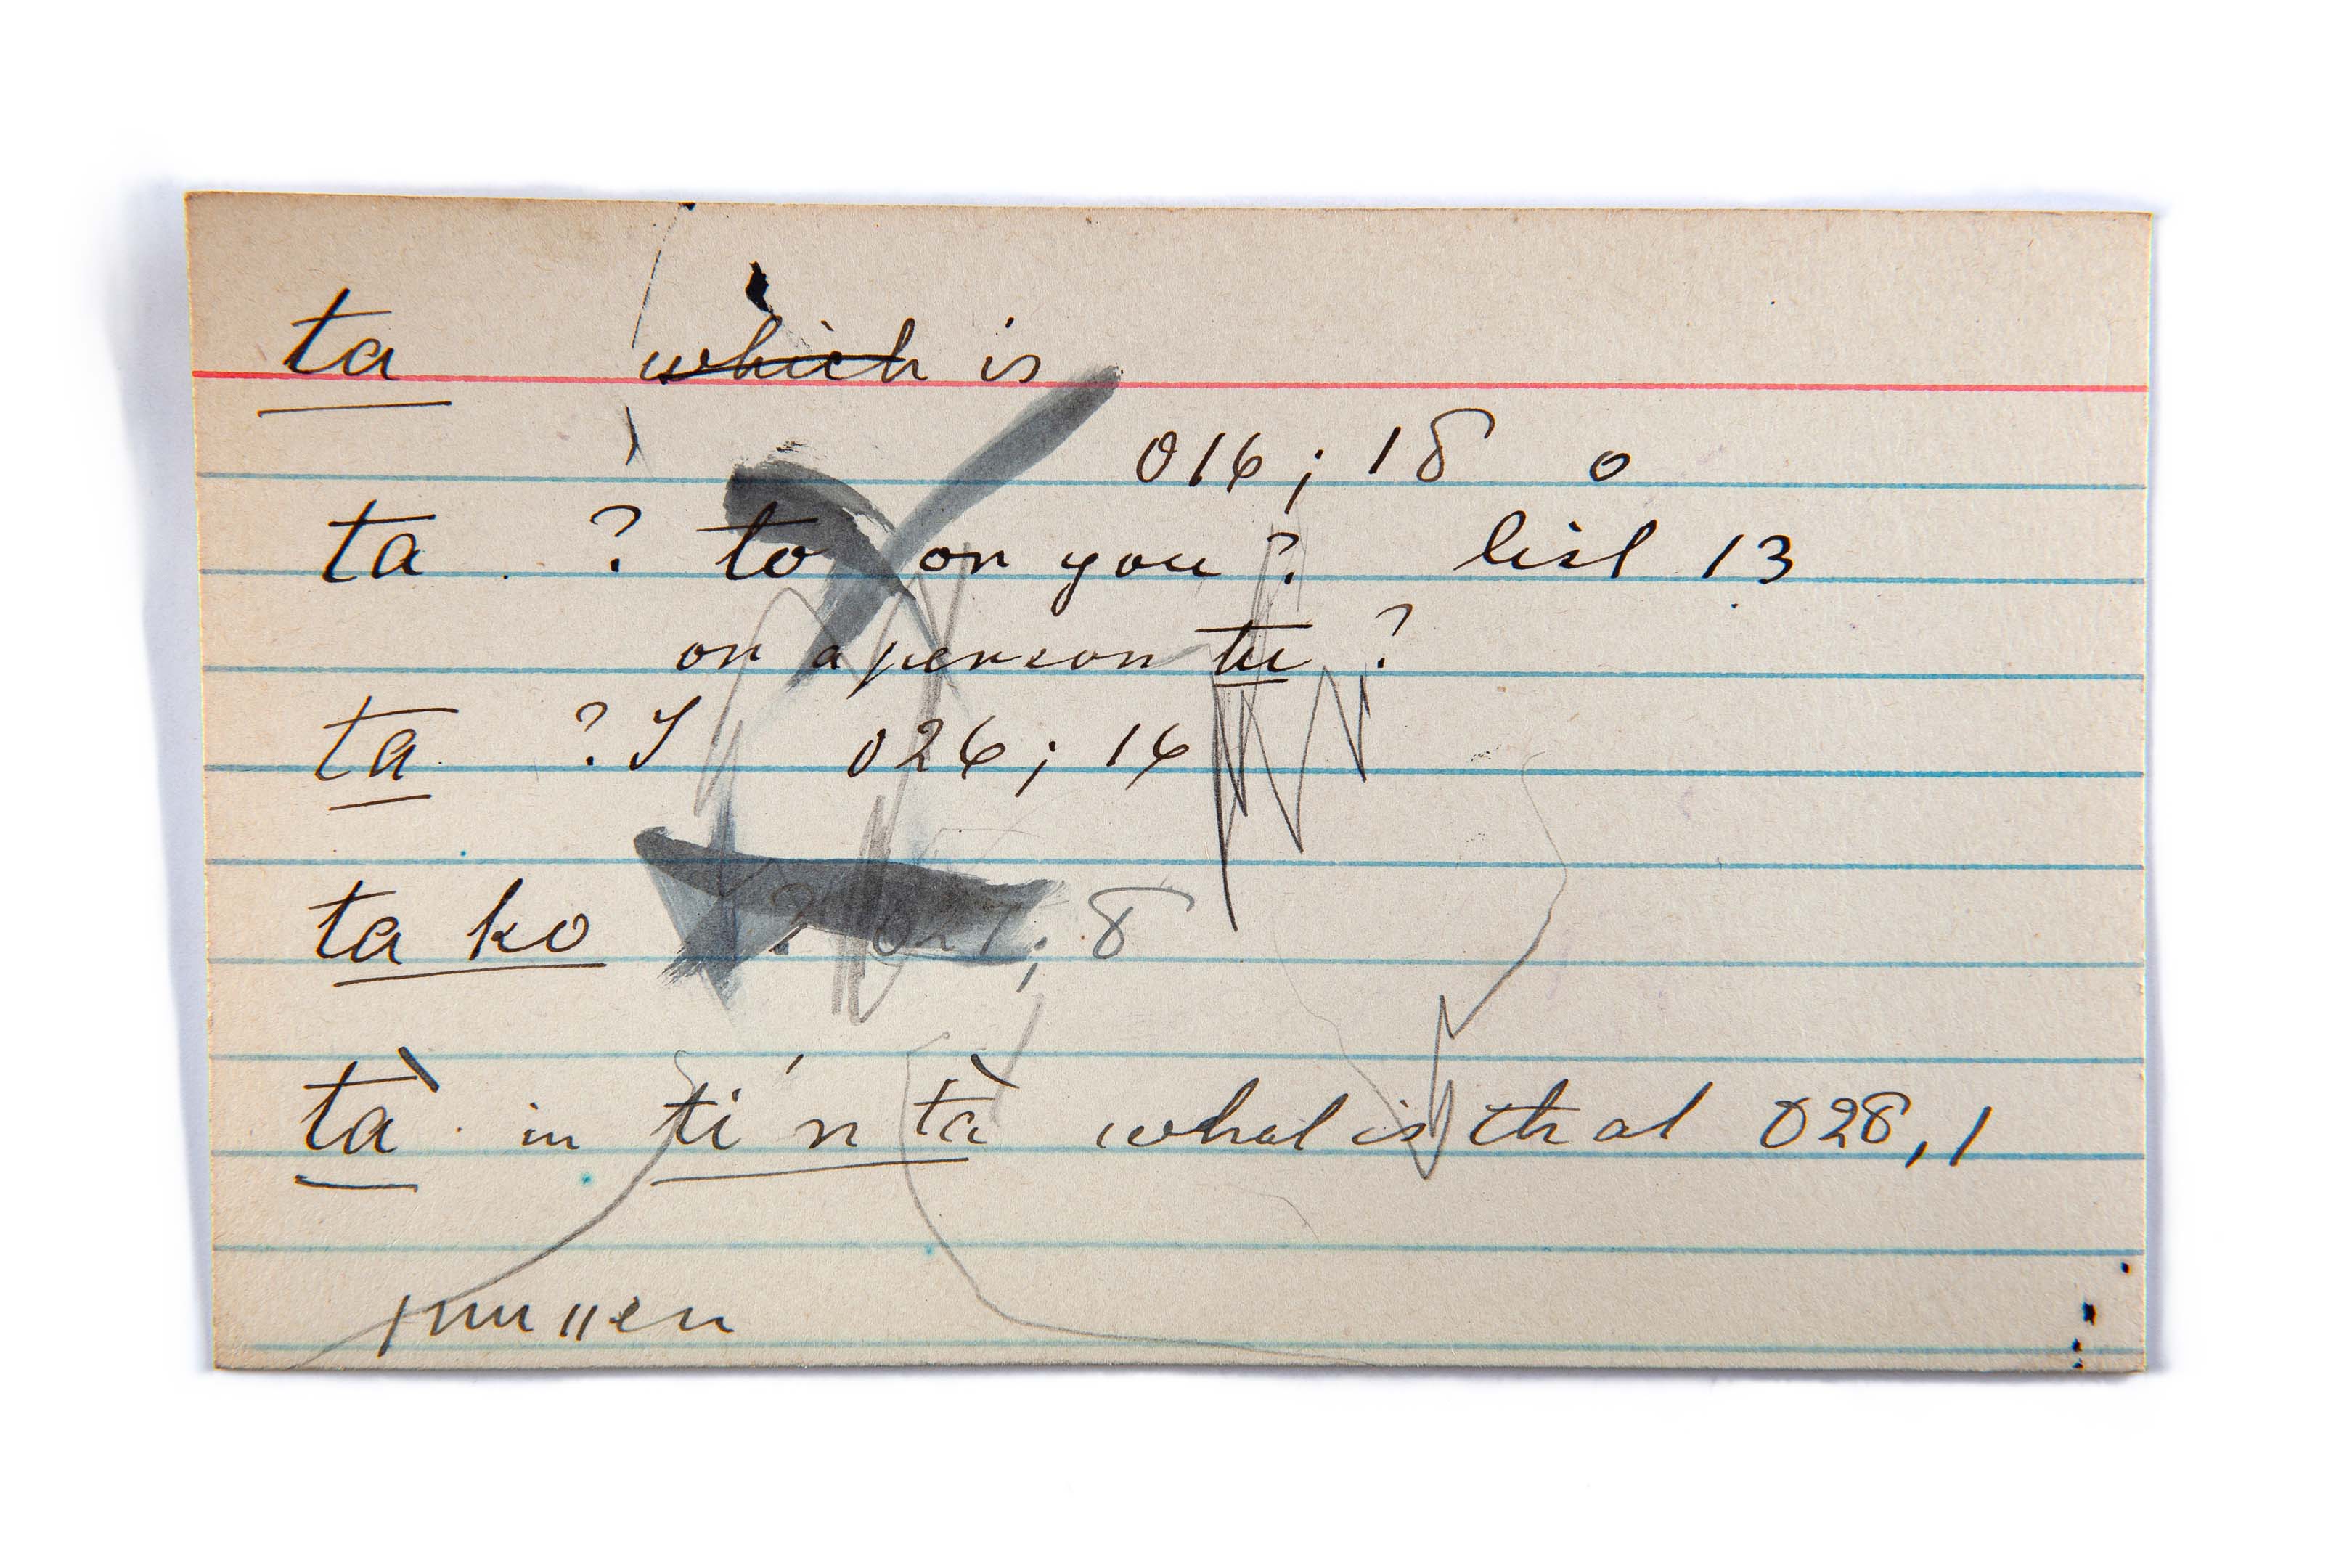 ta which is
016; 18 o
ta ? to or you? list 13
or a person tu ?
ta ? I 026; 16
ta ko ? 027; 8
tà in ti' n tà what is that 028, 1